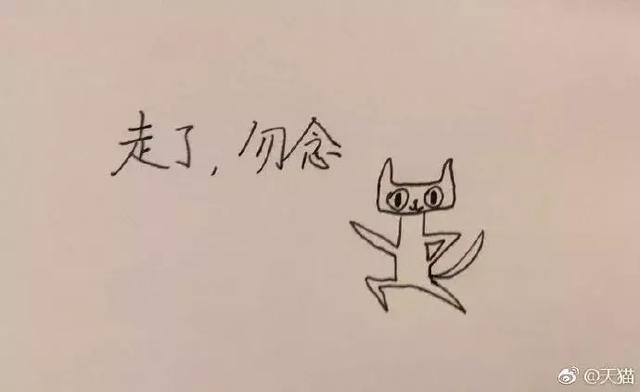 走了,勿念
@天猫